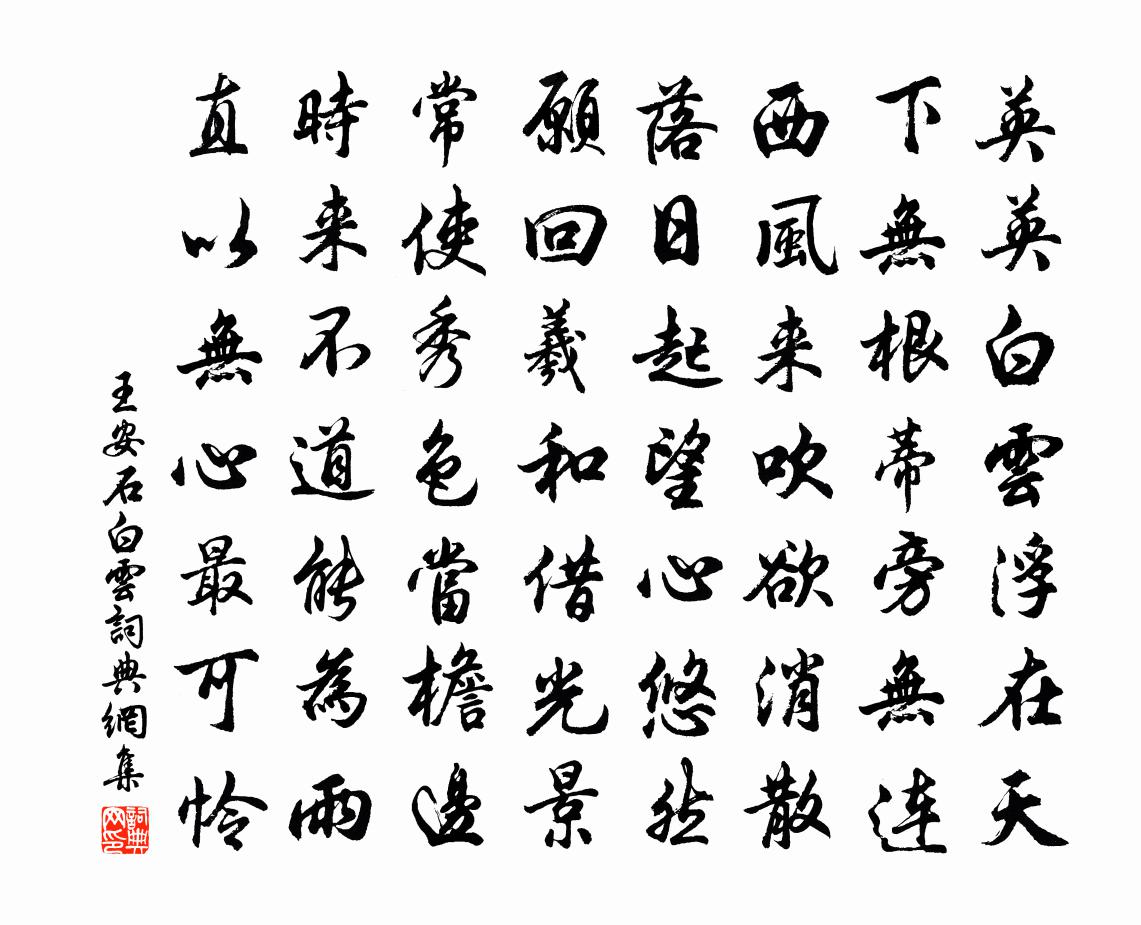 英英白雲浮在天
下無根蒂旁無連
西風来吹欲消散
落日起望心悠然
願回羲和借光景
常使秀色當檐邊
時来不道能為雨
直以無心最可怜
王安石白雲詞典網集
詞典网印